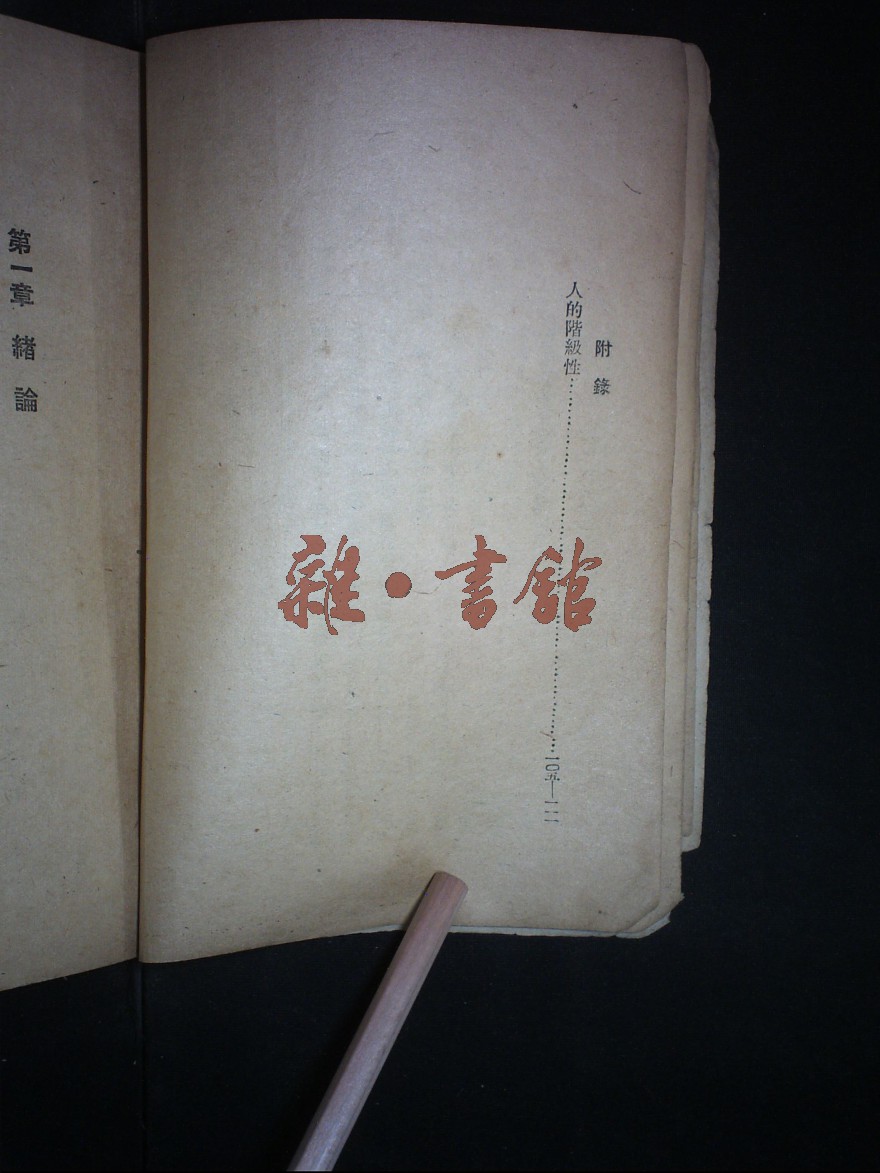 附錄
人的階級性……一〇五—一一一
雜·書館
第一章 緒論